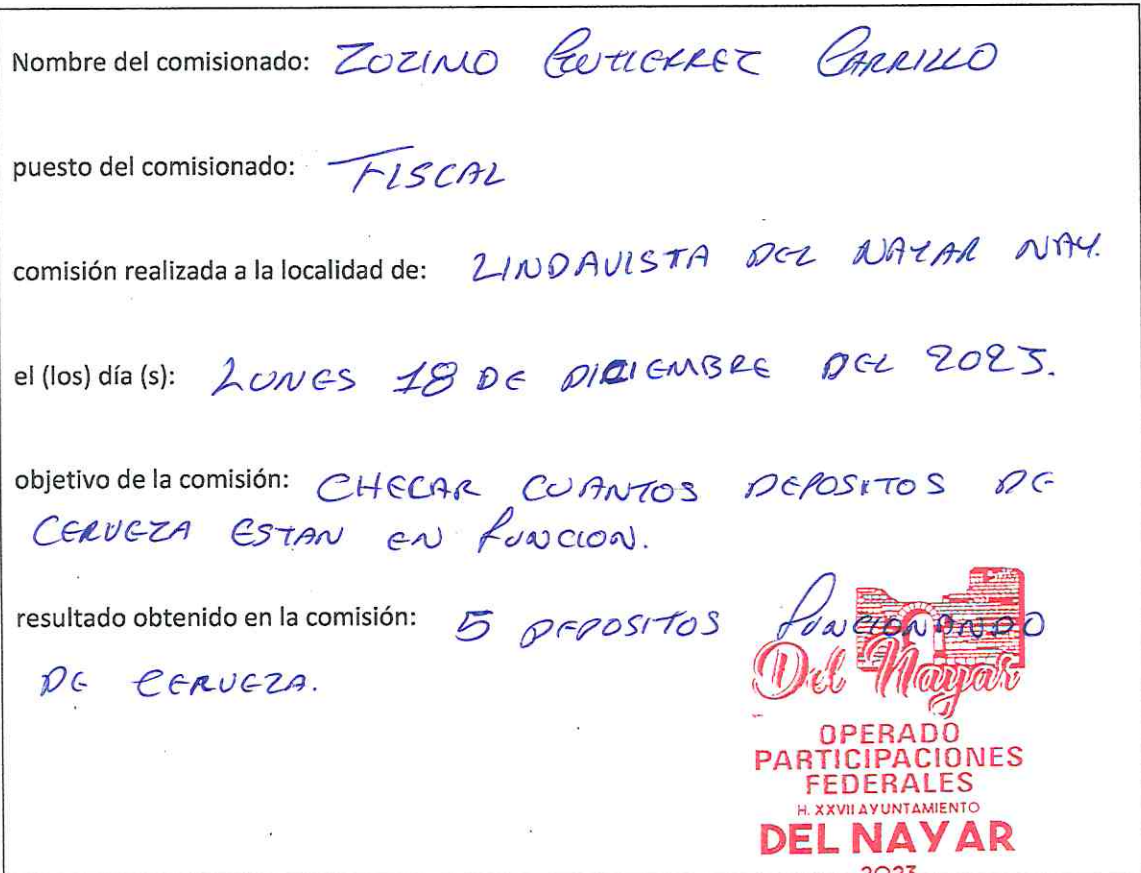 Nombre del comisionado: ZOZIMO GUTIERREZ CARRILLO
puesto del comisionado: FISCAL
comisión realizada a la localidad de: LINDAVISTA DEL NAYAR NAY.
el (los) día (s): LUNES 18 DE DICIEMBRE DEL 2023.
objetivo de la comisión: CHECAR CUANTOS DEPOSITOS DE
CERVEZA ESTAN EN FUNCION.
resultado obtenido en la comisión: 5 DEPOSITOS FUNCIONANDO
DE CERVEZA.
Del Nayar
OPERADO
PARTICIPACIONES
FEDERALES
H. XXVII AYUNTAMIENTO
DEL NAYAR
2023